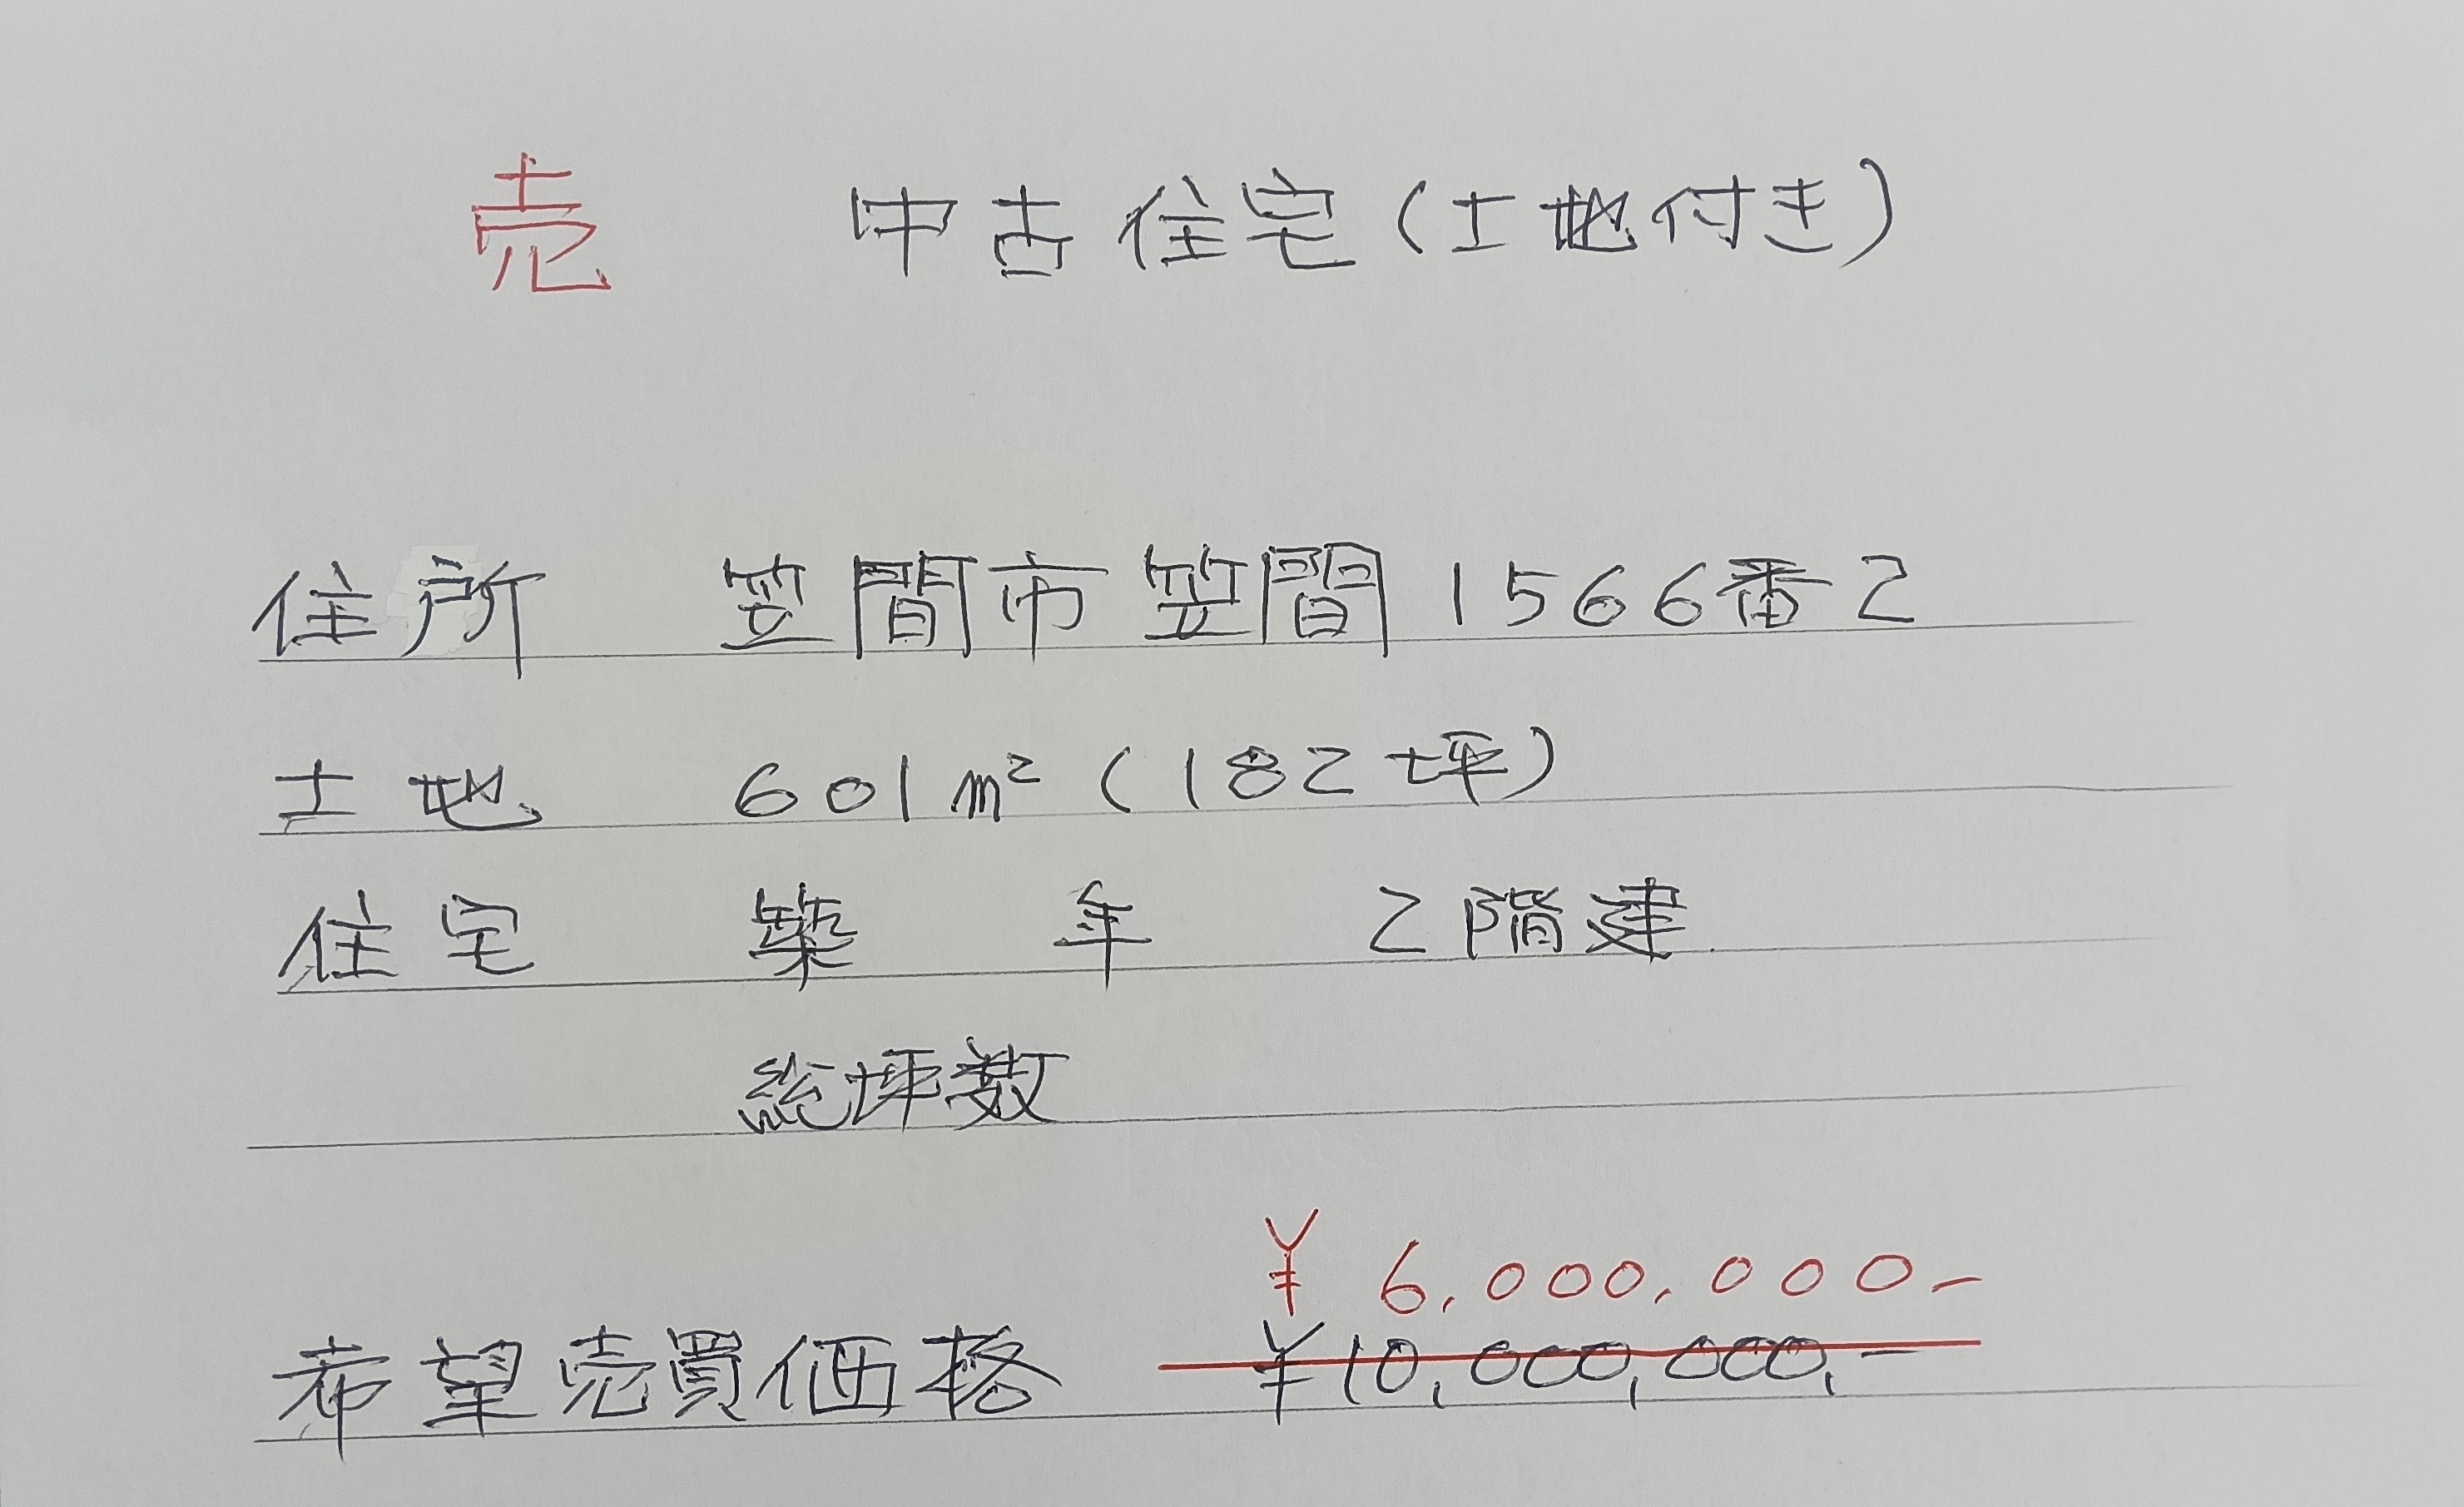 売 中古住宅(土地付き)
住所 笠間市笠間1566番2
土地 601m²(182坪)
住宅 築 年 2階建
総坪数
¥6,000,000-
希望売買価格 ¥10,000,000,-